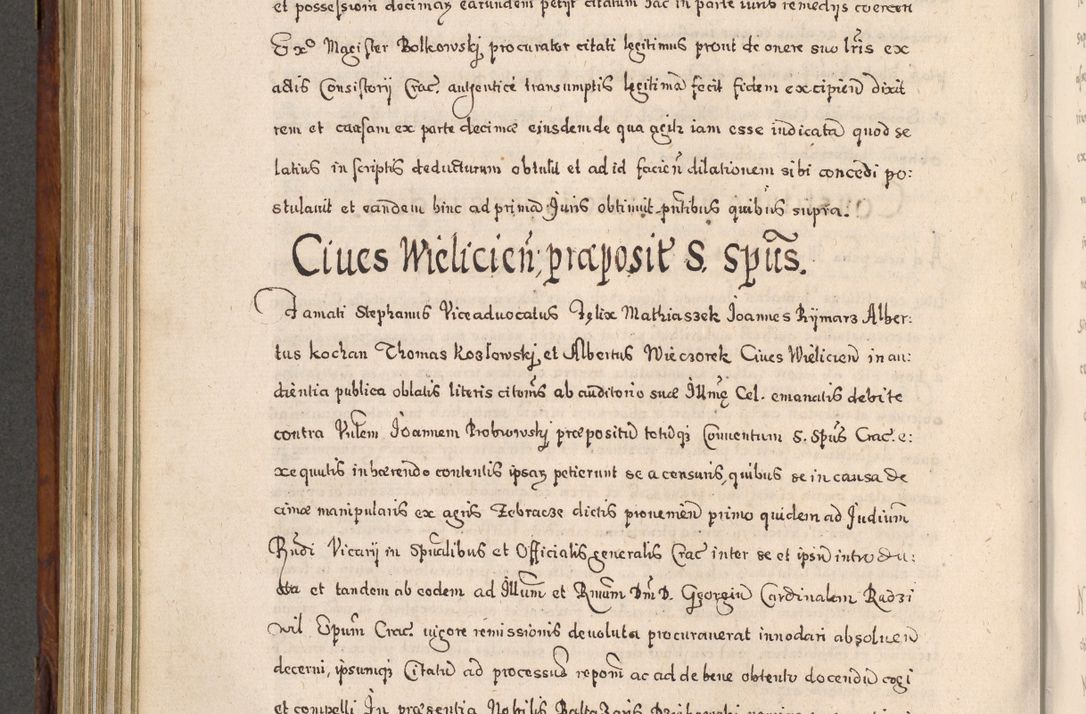 et possessioni decimaɤ earundem petijt citatum hac in parte iuris remedijs coercen
Exᵒ Magister Bolkowskj procurator citati legitimus prout de onere suo lr̃is ex
actis Consistorij Crac. autenticè transumptis legitimã fecit fidem excipień dixit
rem et causam ex parte decimæ eiusdem de qua agitr iam esse iudicatã quod se
latius in scriptis deducturum obtulit et ad id facień dilationem sibi concedi po:
stulauit et eandem hinc ad primã Juris obtinuit pn̄tibus quibus supra.
Ciues Wielicień, præposit S. Spūs.
Famati Stephanus Viceaduocatus Fęlix Mathiaszek Joannes Rÿmarz Alber:
tus Kochan Thomas Kozlowskj et Albertus Wieczorek Ciues Wielicień in au
dientia publica oblatis literis citorijs ab auditorio suæ Illmę Cel. emanatis debite
contra Vnlem Joannem Probrowskj præpositū totūqȝ Conuentum S. Spūs Crac. e:
xequutis inhærendo contentis ipsaɤ petierunt se a censuris, quibus se in causa de
cimæ manipularis ex agris Zebracze dictis prouenień primo quidem ad Judium
Rn̄di Vicarij in Spūalibus et Officialis generalis Crac inter se et ipsū introdu:
cta et tandem ab eodem ad Illum et Rmum Dn̄m D. Georgiū Cardinalem Radzi
wil Epum Crac. uigore remissionis deuoluta procurauerat innodari absoluen
decerni, ipsumqȝ Citatū ad processus reponi ac ad debene obtentu docendū cogi
et compelli In præsentia Nobilis Baltazaris